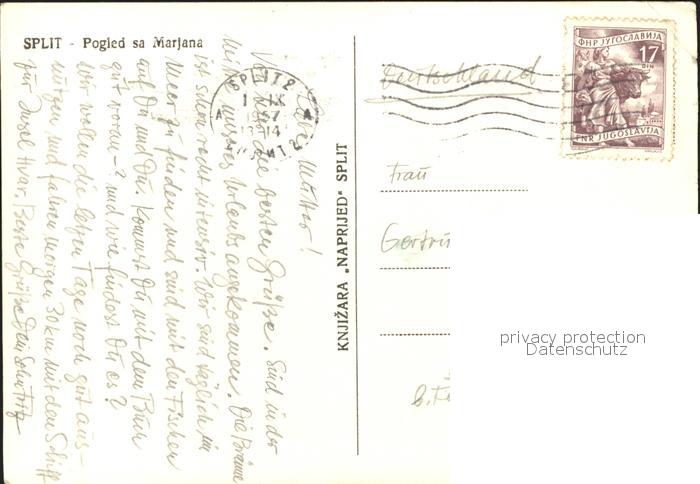 SPLIT - Pogled sa Marjana
Liebe Mutter!
die besten Grüße. Sind in der
unseres Urlaubs angekommen. Die Bräune
ist schon recht intensiv. Wir sind täglich im
Meer zu finden und sind mit den Fischen
auf Du und Du. Kommst Du mit dem Buch
gut voran-? und wie findest Du es?
Wir wollen die letzten Tage noch gut aus-
nützen und fahren morgen 30 km mit dem Schiff
zur Insel Hvar. Beste Grüße Dein
SPLIT 2
KNJIŽARA „NAPRIJED" SPLIT
Deutschland
ФНР ЈУГОСЛАВИЈА
17
DIN
FNR JUGOSLAVIJA
Frau
privacy protection
Datenschutz